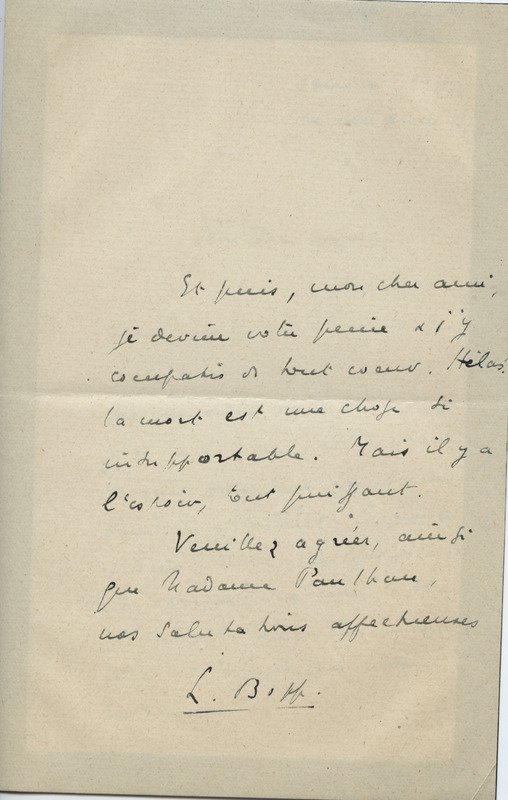 Et puis, mon cher ami,
je devine votre peine & j'y
compatis de tout coeur. Hélas!
la mort est une chose si
insupportable. Mais il y a
l'espoir, tout puissant.
Veuillez agréer, ainsi
que Madame Paulhan,
nos salutations affectueuses
L. Bopp.